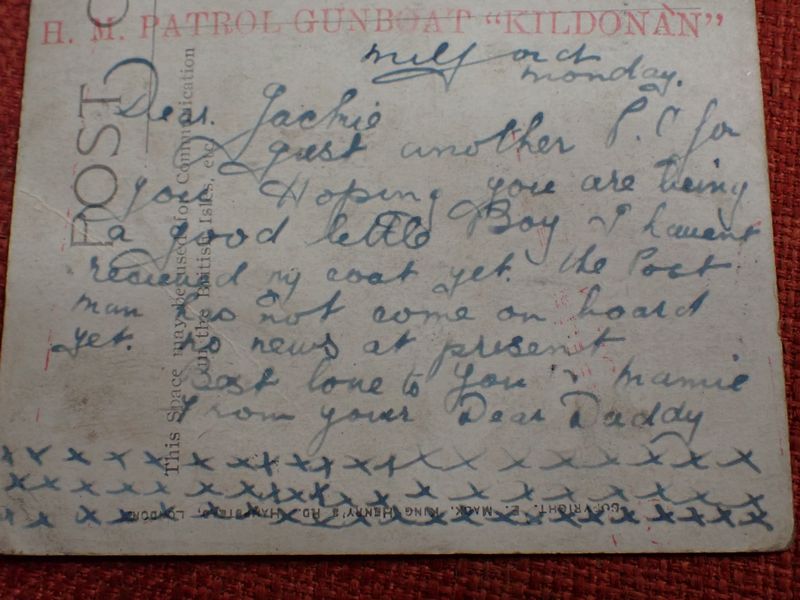 H. M. PATROL GUNBOAT "KILDONAN"
POST C
This Space may be used for Communication
in the British Isles, etc.
Milford
Monday.
Dear. Jackie
Just another P.C for
you Hoping you are being
a good little Boy I havent
recieved my coat yet. the Post
man has not come on board
yet. no news at present
Best love to you & mamie
From your Dear Daddy
x x x x x x x x x x x x x x x x x x x
x x x x x x x x x x x x x x x x x x
x x x x x x x x x x x x x x x x x x x
COPYRIGHT. E. MACK, KING HENRY'S RD. HAMPSTEAD, LONDON.